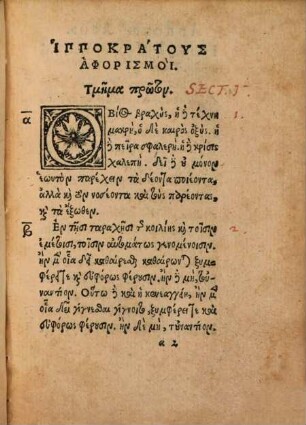 ἹΠΠΟΚΡΆΤΟΥΣ
ἈΦΟΡΙΣΜΟΊ.
Τμῆμα πρῶτον. SECT. I
α Ο ΒΙΟς βραχὺς, ἡ δὲ τέχνη 1.
μακρὴ, ὁ δὲ καιρὸς ὀξὺς, ἡ
δὲ πεῖρα σφαλερὴ, ἡ δὲ κρίσις
χαλεπή. Δεῖ δὲ οὐ μόνον
ἑωυτὸν παρέχειν τὰ δέοντα ποιέοντα,
ἀλλὰ καὶ τὸν νοσέοντα καὶ τοὺς παρέοντας,
καὶ τὰ ἔξωθεν.
β Ἐν τῇσι ταραχῇσι τῆς κοιλίης καὶ τοῖσιν 2.
ἐμέτοισι, τοῖσιν αὐτομάτως γενομένοισιν.
ἢν μὲν οἷα δεῖ καθαίρεσθαι καθαίρωνται ξυμ
φέρει τε καὶ εὐφόρως φέρουσιν. ἢν δὲ μὴ, τοὐ
ναντίον. Οὕτω δὲ καὶ ἡ κενεαγγείη, ἢν μὲν
οἷα δεῖ γίγνεσθαι γίγνοιτο, ξυμφέρει τε καὶ
εὐφόρως φέρουσιν. ἢν δὲ μὴ, τοὐναντίον.
α 2